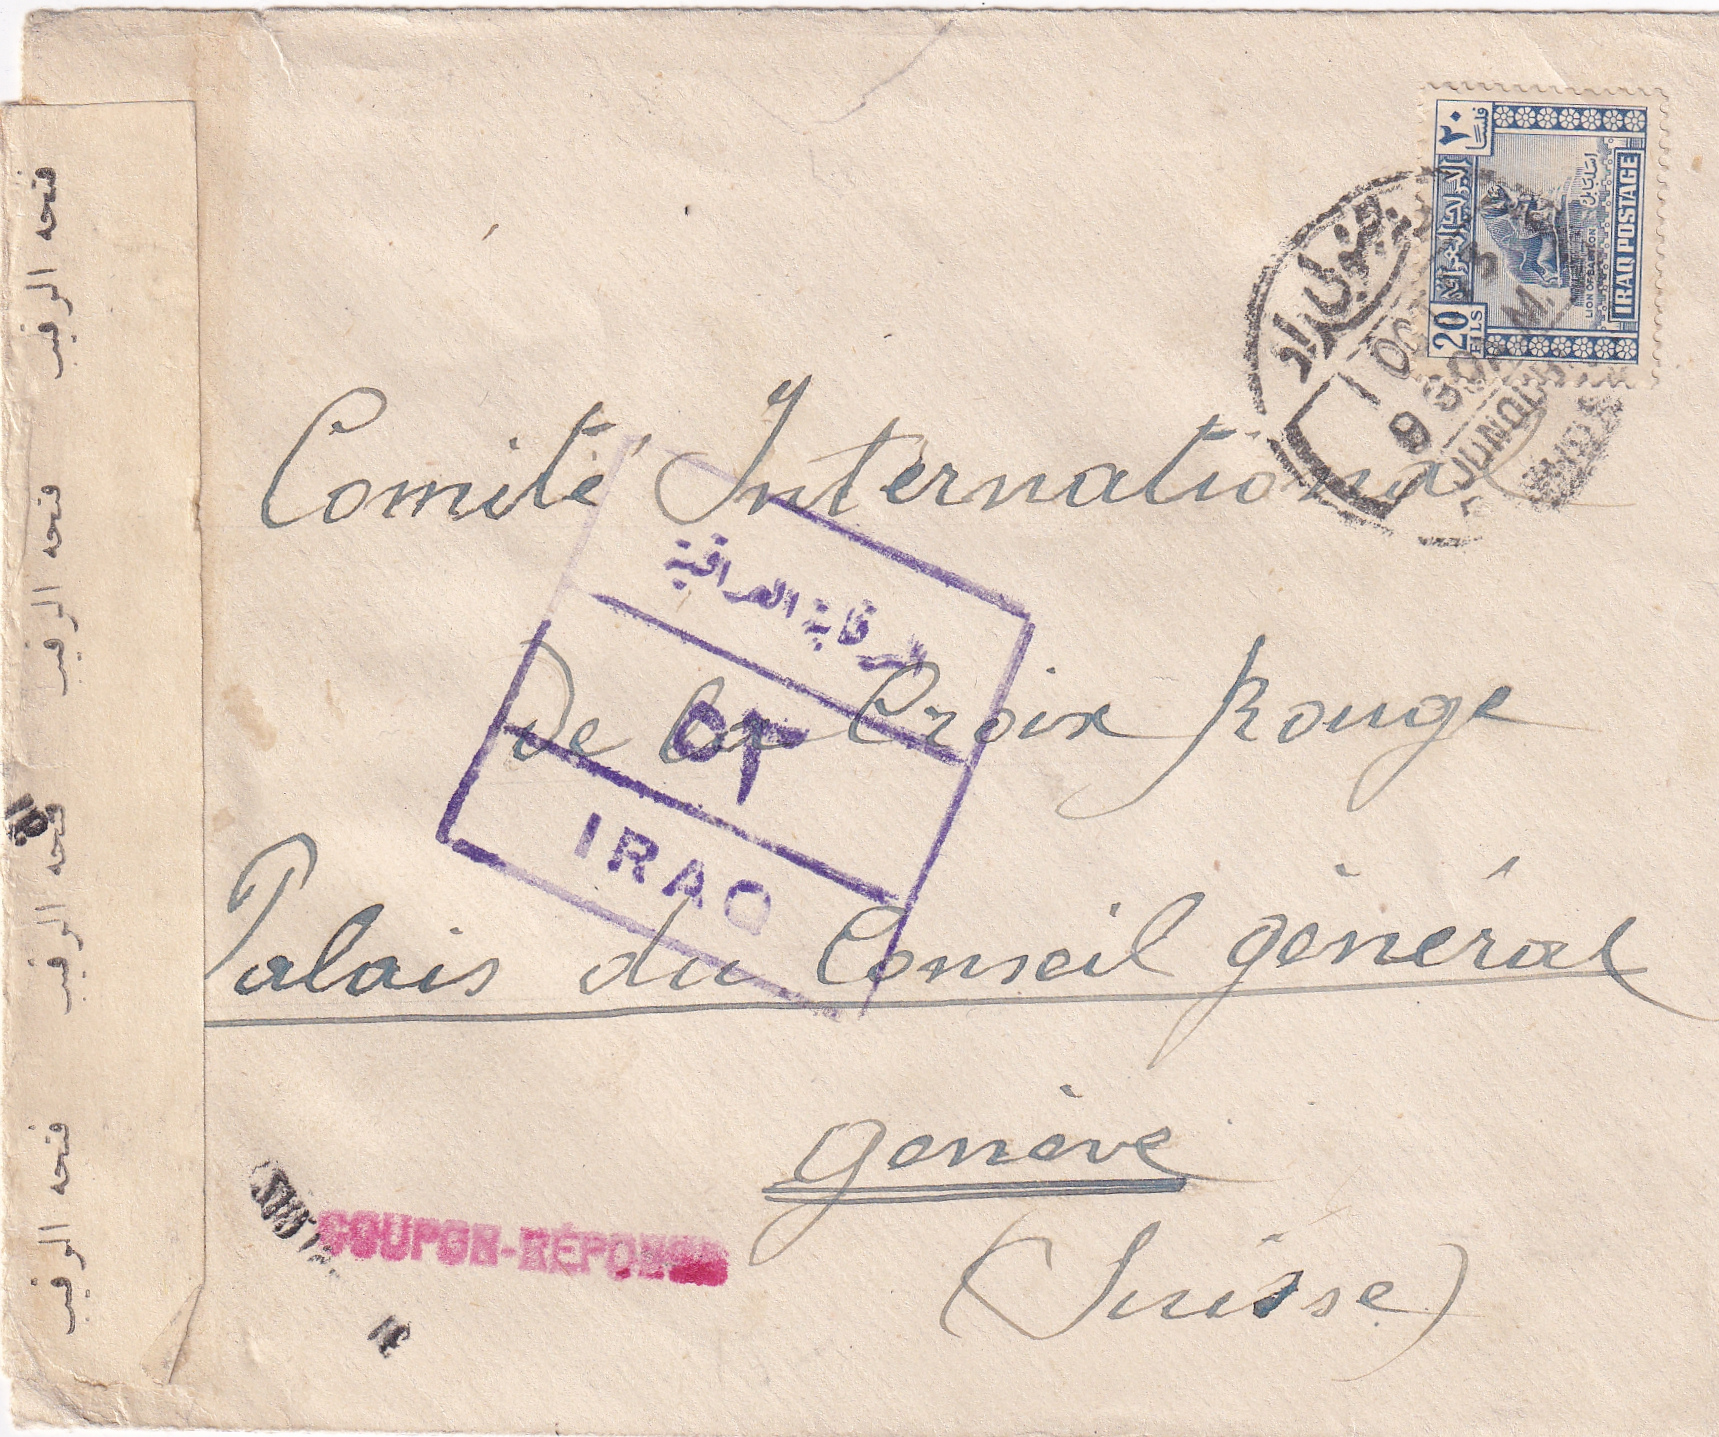 فتحه الرقيب
فتحه الرقيب
فتحه الرقيب
فتحه الرقيب
٢٠
فلسا
IRAQ POSTAGE
LION OF BABYLON
20
FILS
OCT
9 30 AM
Comité International
الرقابة العراقية
De la Croix Rouge
٥٣
IRAQ
Palais du Conseil général
Genève
COUPON-RÉPONSE
(Suisse)